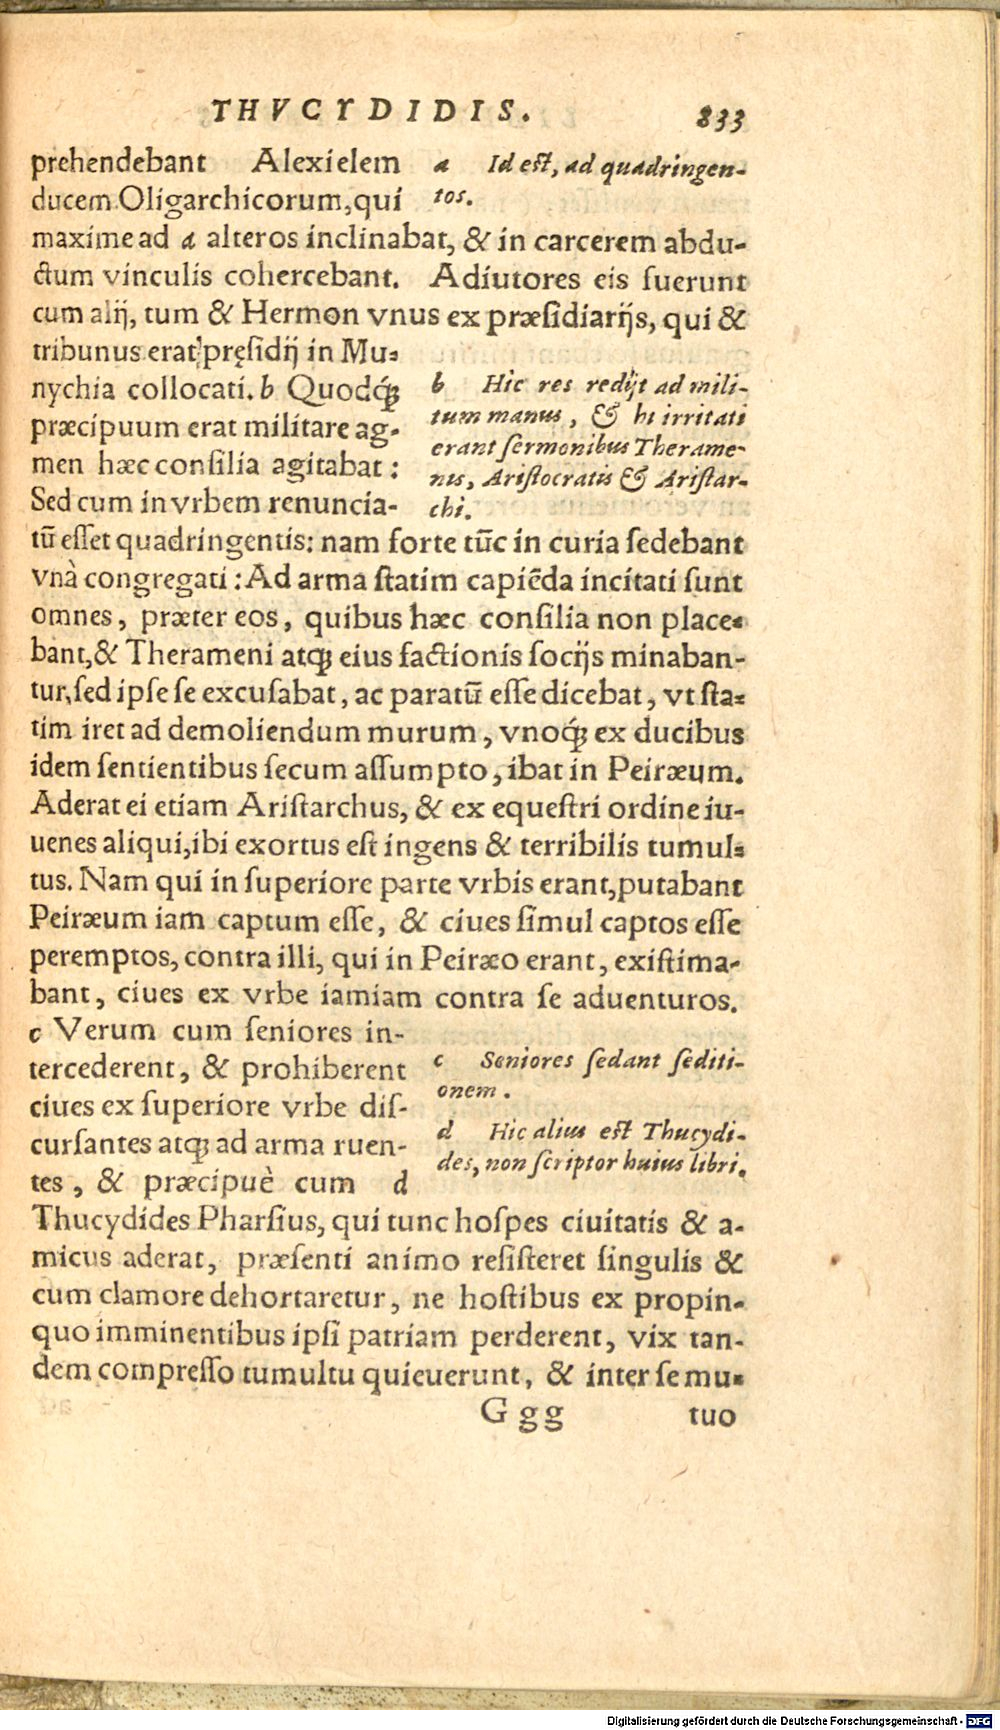 THVCYDIDIS. 833
prehendebant Alexielem
ducem Oligarchicorum, qui
a Id est, ad quadringen-
tos.
maxime ad a alteros inclinabat, & in carcerem abdu-
ctum vinculis cohercebant. Adiutores eis fuerunt
cum alij, tum & Hermon vnus ex præsidiarijs, qui &
tribunus erat præsidij in Mu-
nychia collocati. b Quodq́;
præcipuum erat militare ag-
men hæc consilia agitabat:
Sed cum in vrbem renuncia-
b Hic res redijt ad mili-
tum manus, & hi irritati
erant sermonibus Therame-
nis, Aristocratis & Aristar-
chi.
tū esset quadringentis: nam forte tūc in curia sedebant
vnà congregati: Ad arma statim capiēda incitati sunt
omnes, præter eos, quibus hæc consilia non place-
bant, & Therameni atq; eius factionis socijs minaban-
tur, sed ipse se excusabat, ac paratū esse dicebat, vt sta-
tim iret ad demoliendum murum, vnoq́; ex ducibus
idem sentientibus secum assumpto, ibat in Peiræum.
Aderat ei etiam Aristarchus, & ex equestri ordine iu-
uenes aliqui, ibi exortus est ingens & terribilis tumul-
tus. Nam qui in superiore parte vrbis erant, putabant
Peiræum iam captum esse, & ciues simul captos esse
peremptos, contra illi, qui in Peiræo erant, existima-
bant, ciues ex vrbe iamiam contra se aduenturos.
c Verum cum seniores in-
tercederent, & prohiberent
ciues ex superiore vrbe dis-
cursantes atq; ad arma ruen-
tes, & præcipuè cum d
c Seniores sedant sediti-
onem.
d Hic alius est Thucydi-
des, non scriptor huius libri.
Thucydides Pharsius, qui tunc hospes ciuitatis & a-
micus aderat, præsenti animo resisteret singulis &
cum clamore dehortaretur, ne hostibus ex propin-
quo imminentibus ipsi patriam perderent, vix tan-
dem compresso tumultu quieuerunt, & inter se mu-
Ggg tuo
Digitalisierung gefördert durch die Deutsche Forschungsgemeinschaft - DFG